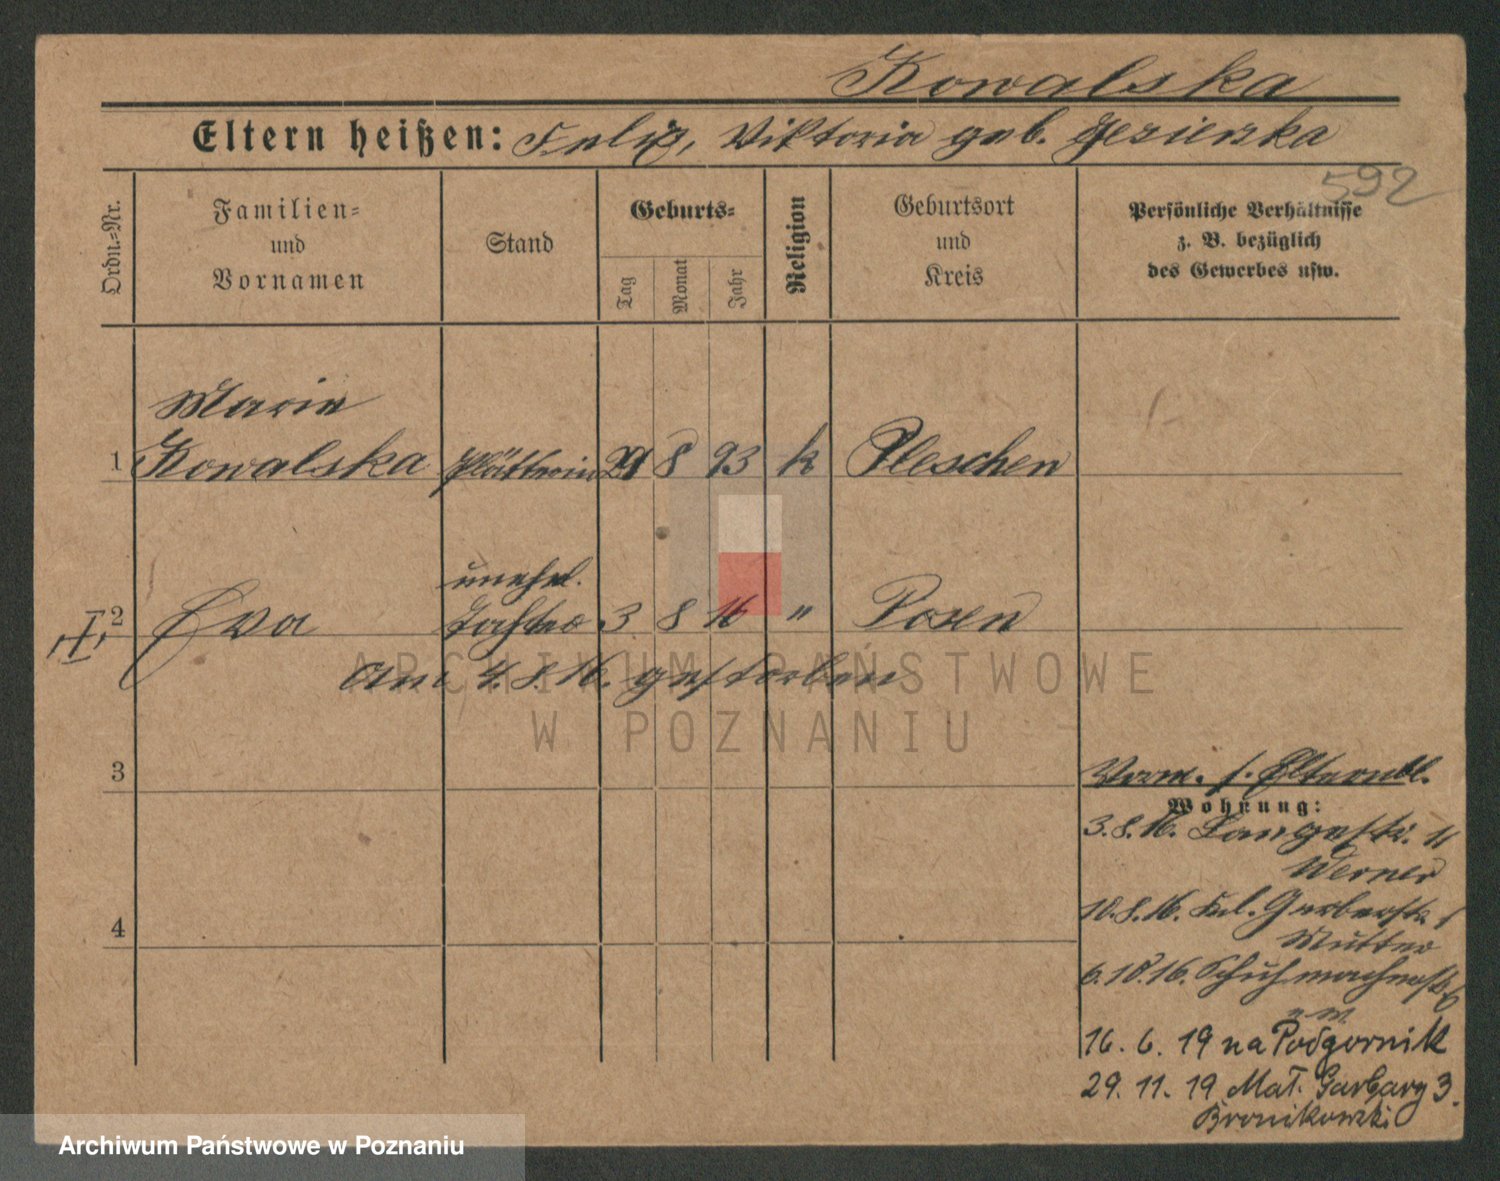 Kowalska
Eltern heißen: Felix, Viktoria geb. Jezierska
592
Ordn.=Nr.
Familien=
und
Vornamen
Stand
Geburts=
Tag
Monat
Jahr
Religion
Geburtsort
und
Kreis
Persönliche Verhältnisse
z. B. bezüglich
des Gewerbes usw.
Marie
1 Kowalska Plätterin 29 8 93 k Pleschen
unehel.
2 Eva Tochter 3 8 16 " Posen
Am 4. 8. 16. gestorben
3
Vorm. s. Elternbl.
Wohnung:
3. 8. 16. Langestr. 11
Werner
10. 8. 16. Kl. Gerberstr.
Mutter
6. 10. 16. Schuhmacherstr. 6
16. 6. 19 na Podgornik
29. 11. 19 Mał. Garbary 3.
Bronikowski
4
ARCHIWUM PAŃSTWOWE
W POZNANIU
Archiwum Państwowe w Poznaniu